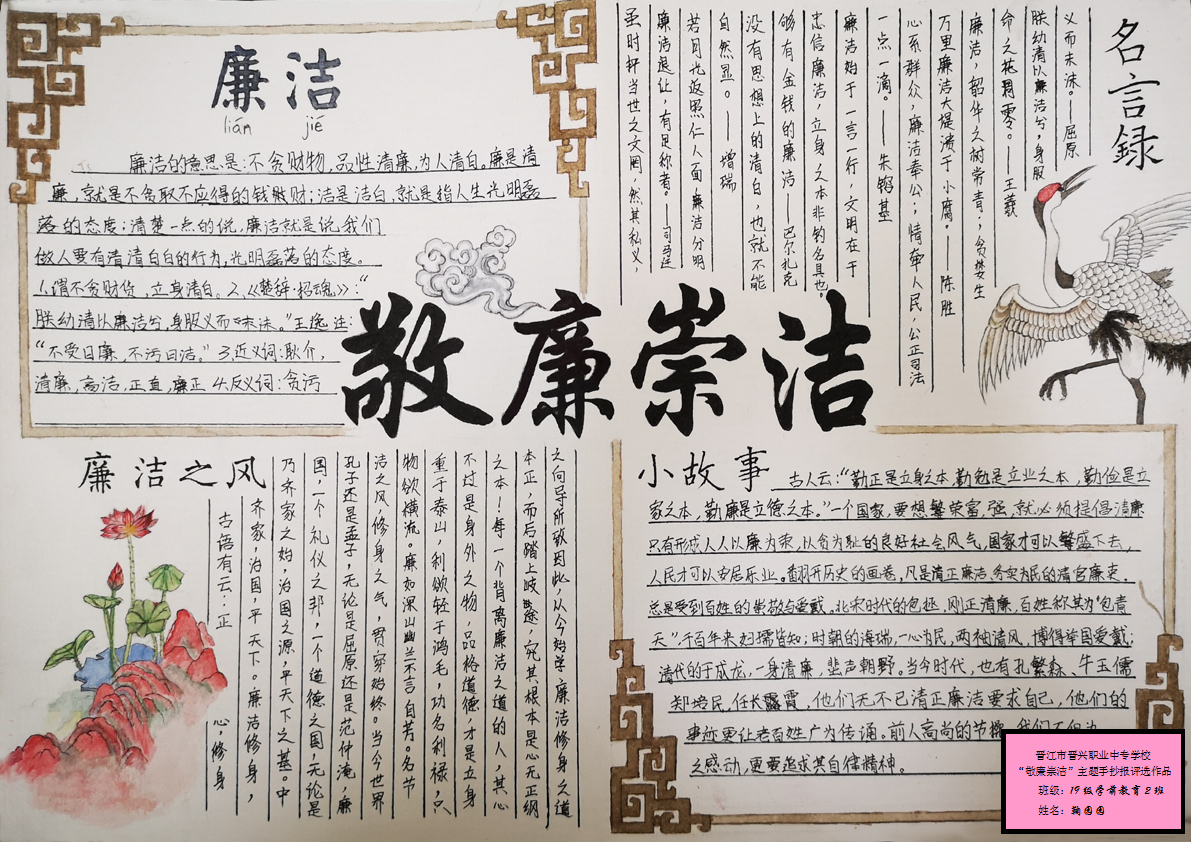 廉洁
lián jié
廉洁的意思是:不贪财物,品性清廉,为人清白。廉是清
廉,就是不贪取不应得的钱财;洁是洁白,就是指人生光明磊
落的态度;清楚一点的说,廉洁就是说,我们
做人要有清清白白的行为,光明磊落的态度。
1.谓不贪财货,立身清白。2.《楚辞·招魂》:“
朕幼清以廉洁兮,身服义而未沫。”王逸注:
“不受曰廉,不污曰洁。”3.近义词:耿介,
清廉,高洁,正直,廉正 4.反义词:贪污
名言録
义而未沫。——屈原
朕幼清以廉洁兮,身服
命之花凋零。——王羲
廉洁,韶华之树常青;贪婪生
万里廉洁大堤溃于小腐。——陈胜
心系群众,廉洁奉公;情牵人民,公正司法
一点一滴。——朱镕基
廉洁始于一言一行,文明在于
忠信廉洁,立身之本非钓名具也。
够有金钱的廉洁——巴尔扎克
没有思想上的清白,也就不能
自然显。——增瑞
若目光返照仁人面,廉洁分明
廉洁退让,有足称者。——司马迁
虽时扞当世之文罔,然其私义,
敬廉崇洁
廉洁之风
古语有云:正
心,修身
齐家,治国,平天下。廉洁修身,
乃齐家之始,治国之源,平天下之基。中
国,一个礼仪之邦,一个道德之国,无论是
孔子还是孟子,无论是屈原还是范仲淹,廉
洁之风,修身之气,贯穿始终。当今世界
物欲横流。廉如深山幽兰不言自芳。名节
重于泰山,利欲轻于鸿毛,功名利禄,只
不过是身外之物,品格道德,才是立身
之本!每一个背离廉洁之道的人,其心
本正,而后踏上岐途,究其根本是心无正纲
之向导所致因此,从今始学,廉洁修身之道
小故事
古人云:“勤正是立身之本,勤勉是立业之本,勤俭是立
家之本,勤廉是立德之本。”一个国家,要想繁荣富强,就必须提倡清廉
只有形成人人以廉为荣,以贪为耻的良好社会风气,国家才可以繁盛下去,
人民才可以安居乐业。翻开历史的画卷,凡是清正廉洁、务实为民的清官廉吏,
总是受到百姓的崇敬与爱戴。北宋时代的包拯,刚正清廉,百姓称其为“包青
天”,千百年来妇孺皆知;时朝的海瑞,一心为民,两袖清风,博得举国爱戴;
清代的于成龙,一身清廉,蜚声朝野。当今时代,也有孔繁森、牛玉儒
郑培民,任长霞霄,他们无不已清正廉洁要求自己,他们的
事迹更让老百姓广为传诵。前人高尚的节操,我们不但为
之感动,更要追求其自律精神。
晋江市晋兴职业中专学校
“敬廉崇洁”主题手抄报评选作品
班级:19级学前教育2班
姓名:鞠园园